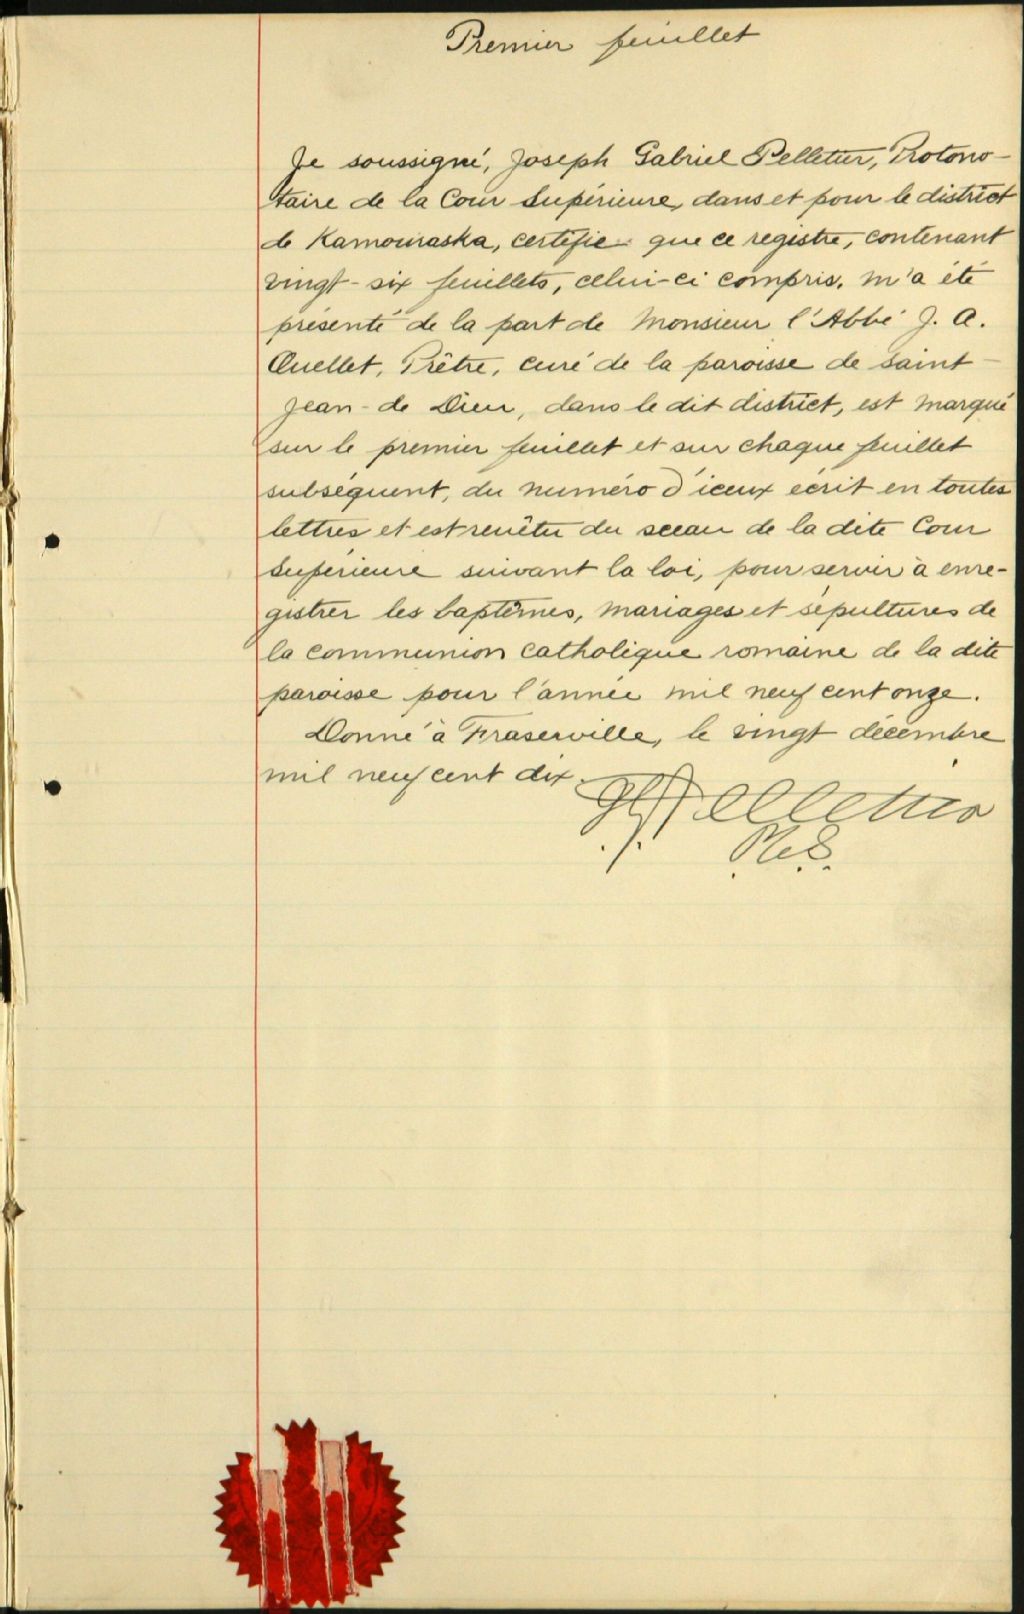 Premier feuillet
Je soussigné, Joseph Gabriel Pelletier, Protono-
taire de la Cour Supérieure, dans et pour le district
de Kamouraska, certifie que ce registre, contenant
vingt-six feuillets, celui-ci compris, m'a été
présenté de la part de Monsieur l'Abbé J. A.
Ouellet, Prêtre, curé de la paroisse de Saint-
Jean-de Dieu, dans le dit district, est marqué
sur le premier feuillet et sur chaque feuillet
subséquent, du numéro d'iceux écrit en toutes
lettres et est revêtu du sceau de la dite Cour
Supérieure suivant la loi, pour servir à enre-
gistrer les baptêmes, mariages et sépultures de
la communion catholique romaine de la dite
paroisse pour l'année mil neuf cent onze.
Donné à Fraserville, le vingt décembre
mil neuf cent dix.
Pelletier
P.C.S.